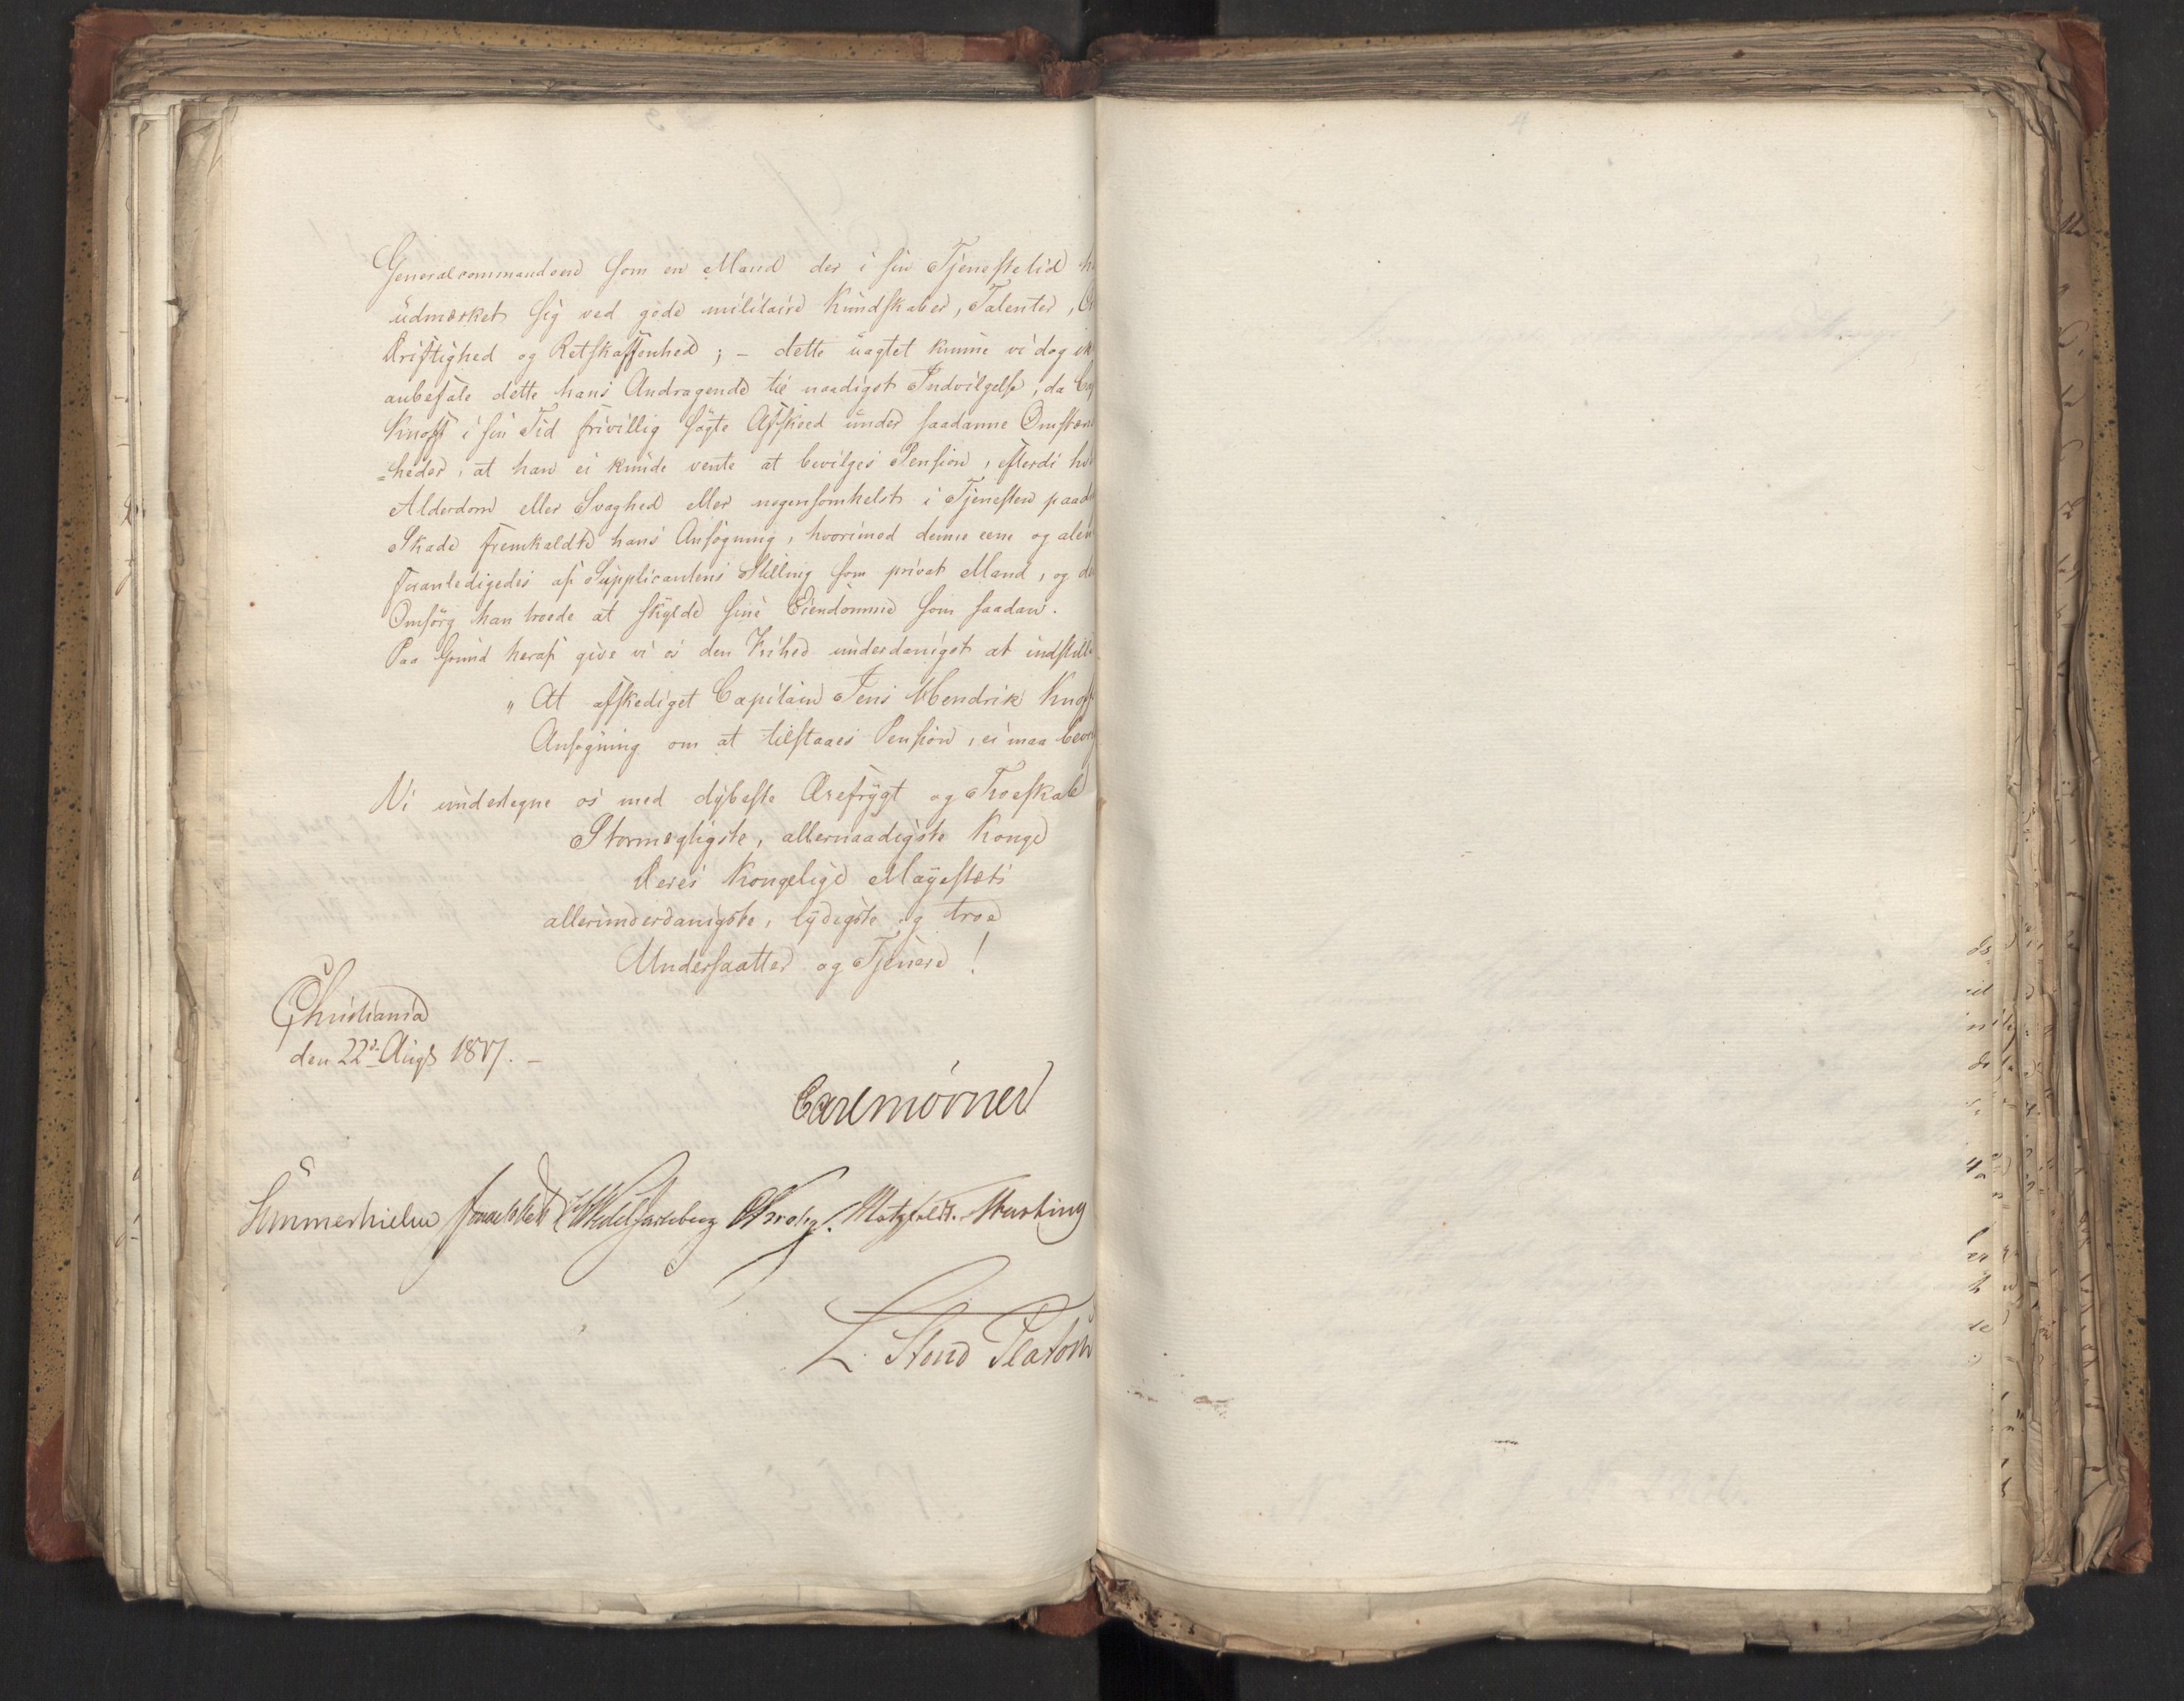 Generalcommandoen som en Mand der i sin Tjenestetid
udmærket sig ved gode militaire Kundskaber, Talenter,
Driftighed og Retskaffenhed; – dette uagtet kunne vi dog
anbefale dette hans Andragende til naadigst Indvilgelse, da
Knoff i sin Tid frivillig søgte Afskeed under saadanne Omstæn
=heder, at han ei kunde vente at bevilges Pension, efterdi
Alderdom eller Svaghed eller nogensomhelst i Tjenesten
Skade fremkaldte hans Ansøgning, hvorimod denne eene og
foranledigedes af Supplicantens Stilling som privat Mand, og
Omsorg han troede at skylde sine Eiendomme som saadan.
Paa Grund heraf give vi os den Frihed underdanigst at indstille
„ At afskediget Capitain Jens Hendrik Knoff
Ansøgning om at tilstaaes Pension, ei maa
Vi undertegne os med dybeste Ærefrygt og Troeskab
Stormægtigste, allernaadigste Konge
Deres Kongelige Mayestæts
allerunderdanigste, lydigste og troe
Undersaatter og Tjenere!
Christiania
den 22de Augs 1817. –
Carl mörner
Sommerhielm Wedel Jarlsberg Krohg. Motzfeldt. Hersting
L. Stoud Platou
3
4